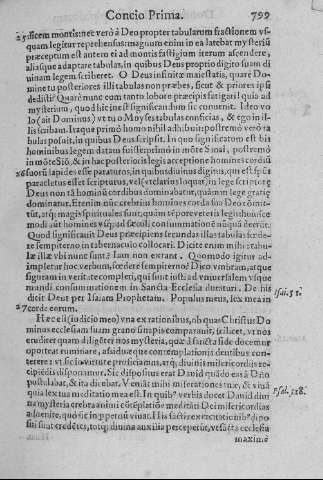 Concio Prima. 799
25 dicem montis: nec verò à Deo propter tabularum fractionem vs-
quam legitur reprehensus: magnum enim in ea latebat mysteriũ
præceptum est autem ei ad montis fastigium iterum ascendere,
aliasque adaptare tabulas, in quibus Deus proprio digito suam di
uinam legem scriberet. O Deus infinitæ maiestatis, quare Do-
mine tu posteriores illi tabulas non præbes, sicut & priores ipsi
dedisti? Quare nunc cum tanto labore præcipis fatigari? quia ad
mysterium, quod hic inest significandum sic conuenit. Ideo vo
lo (ait Dominus) vt tu ô Moyses tabulas conficias, & ego in il-
lis scribam. Itaque primò homo nihil adhibuit: postremò verò ta
bulas posuit, in quibus Deus scripsit. In quo significatum est bis
hominibus legem datam fuisse: primò in môte Sinai, postremò
in môte Siõ, & in hac posterioris legis acceptione homines cordiũ
26 suorũ lapides esse paraturos, in quibus diuinus digitus, qui est spũs
paracletus esset scripturus, vel (vt clarius loquar) in lege scripturę
Deus non tã hominũ cordibus dominabatur, quàm in lege gratię
dominatur. Etenim nũc crebrius homines corda sua Deo cõmit-
tũt, atq; magis spirituales sunt, quàm te
modi aut homines vsquad sęculi consummationẽ nũquã deerũt.
Quod significauit Deus præcipiens secundas illas tabulas fœde-
re sempiterno in tabernaculo collocari. Dicite enim mihi: tabu-
læ illæ vbi nunc sunt? Iam non extant. Quomodo igitur ad-
impletur hoc verbum, fœdere sempiterno? Dico vmbram, atque
figuram in veritate compleri, qui sunt iusti ad vniuersalem vsque
mundi consummationem in Sancta Ecclesia duraturi. De his
dicit Deus per Isaiam Prophetam. Populus meus, lex mea in
27 corde eorum.
Isai. 51.
Hæc est (iudicio meo) vna ex rationibus, ob quas Christus Do
minus ecclesiam suam grano sinapis comparauit, scilicet, vt nos
erudiret quàm diligẽter nos mysteria, quæ à sancta side docemur
oporteat ruminare, assiduæque contemplationis dentibus con-
terere: vt sic suauitate proficiamus, atq; diuinis misericordiis re-
cipiẽdis disponamur. Sic dispositus erat Dauid quãdo eas à Deo
postulabat, & ita dicebat. Veniãt mihi miserationes tuæ, & viuã
quia lex tua meditatio mea est. In quib⁹ verbis docet Dauid diui
na mysteria crebra animi cõtẽplatiõe meditãti Dei misericordias
aduenire, quò sic in
sui suut credẽtes, totq; diuina auxilia perceperũt, vt sãcta ecclesia
Psal. 118.
maximè